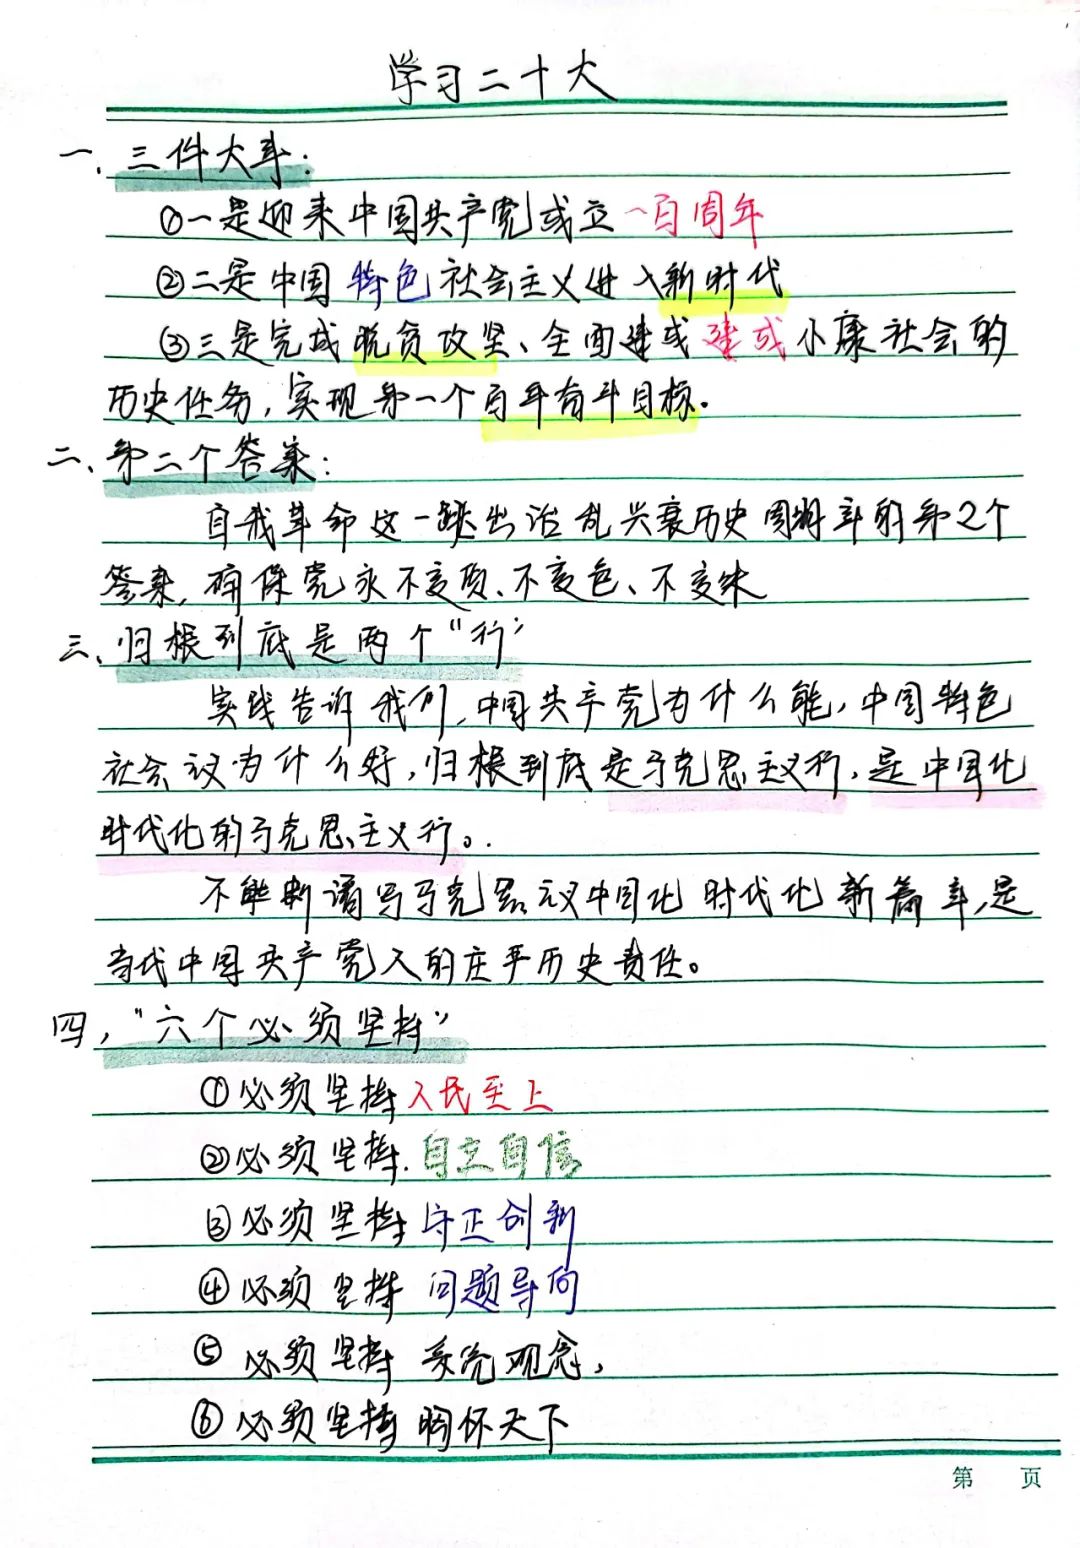 学习二十大
一、三件大事:
①一是迎来中国共产党成立一百周年
②二是中国特色社会主义进入新时代
③三是完成脱贫攻坚、全面建成建成小康社会的
历史任务,实现第一个百年奋斗目标.
二、第二个答案:
自我革命这一跳出治乱兴衰历史周期率的第2个
答案,确保党永不变质、不变色、不变味
三、归根到底是两个“行”
实践告诉我们,中国共产党为什么能,中国特色
社会议为什么好,归根到底是马克思主义行,是中国化
时代化的马克思主义行。
不断谱写马克思主义中国化时代化新篇章,是
当代中国共产党人的庄严历史责任。
四,“六个必须坚持”
①必须坚持人民至上
②必须坚持.自立自信
③必须坚持守正创新
④必须坚持问题导向
⑤必须坚持系统观念,
⑥必须坚持胸怀天下
第 页